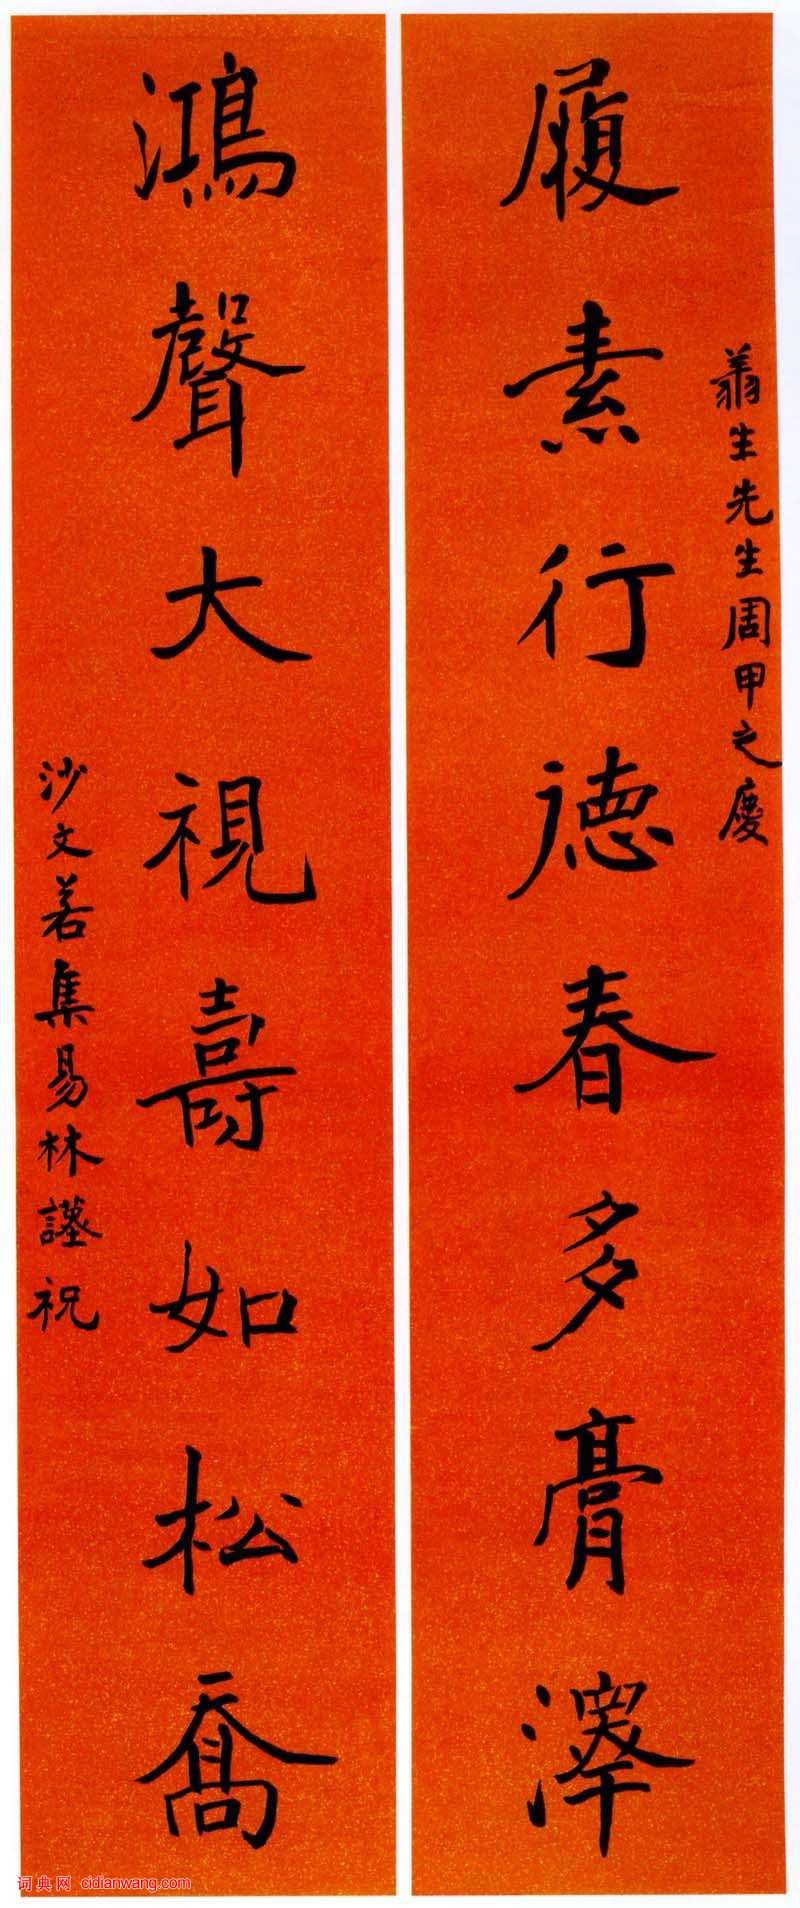 翁生先生周甲之慶
履素行德春多膏澤
鴻聲大視壽如松喬
沙文若集易林謹祝
词典网 cidianwang.com